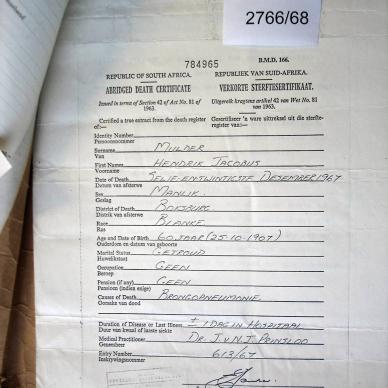 2766/68
784965
B.M.D. 166.
REPUBLIC OF SOUTH AFRICA. REPUBLIEK VAN SUID-AFRIKA.
ABRIDGED DEATH CERTIFICATE VERKORTE STERFTESERTIFIKAAT.
Issued in terms of Section 42 of Act No. 81 of 1963. Uitgereik kragtens artikel 42 van Wet No. 81 van 1963.
Certified a true extract from the death register of:— Gesertifiseer 'n ware uittreksel uit die sterfteregister van:—
Identity Number
Persoonsnommer
Surname MULDER
Van
First Names HENDRIK JACOBUS
Voorname
Date of Death DESEMBER 1967
Datum van afsterwe
Sex MANLIK.
Geslag
District of Death BOKSBURG
Distrik van afsterwe
Race BLANKE
Ras
Age and Date of Birth 60 JAAR (25-10-1907)
Ouderdom en datum van geboorte
Marital Status GETROUD
Huwelikstaat
Occupation GEEN
Beroep
Pension (if any) GEEN
Pensioen (indien enige)
Causes of Death BRONGOPNEUMANIE
Oorsake van dood
Duration of Disease or Last Illness ± 1 DAG IN HOSPITAAL
Duur van kwaal of laaste siekte
Medical Practitioner DR. J. V. N. J. PRINSLOO
Geneesheer
Entry Number 613/67
Inskrywingsnommer